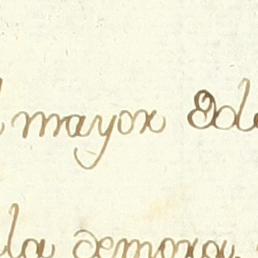 mayor
la demora